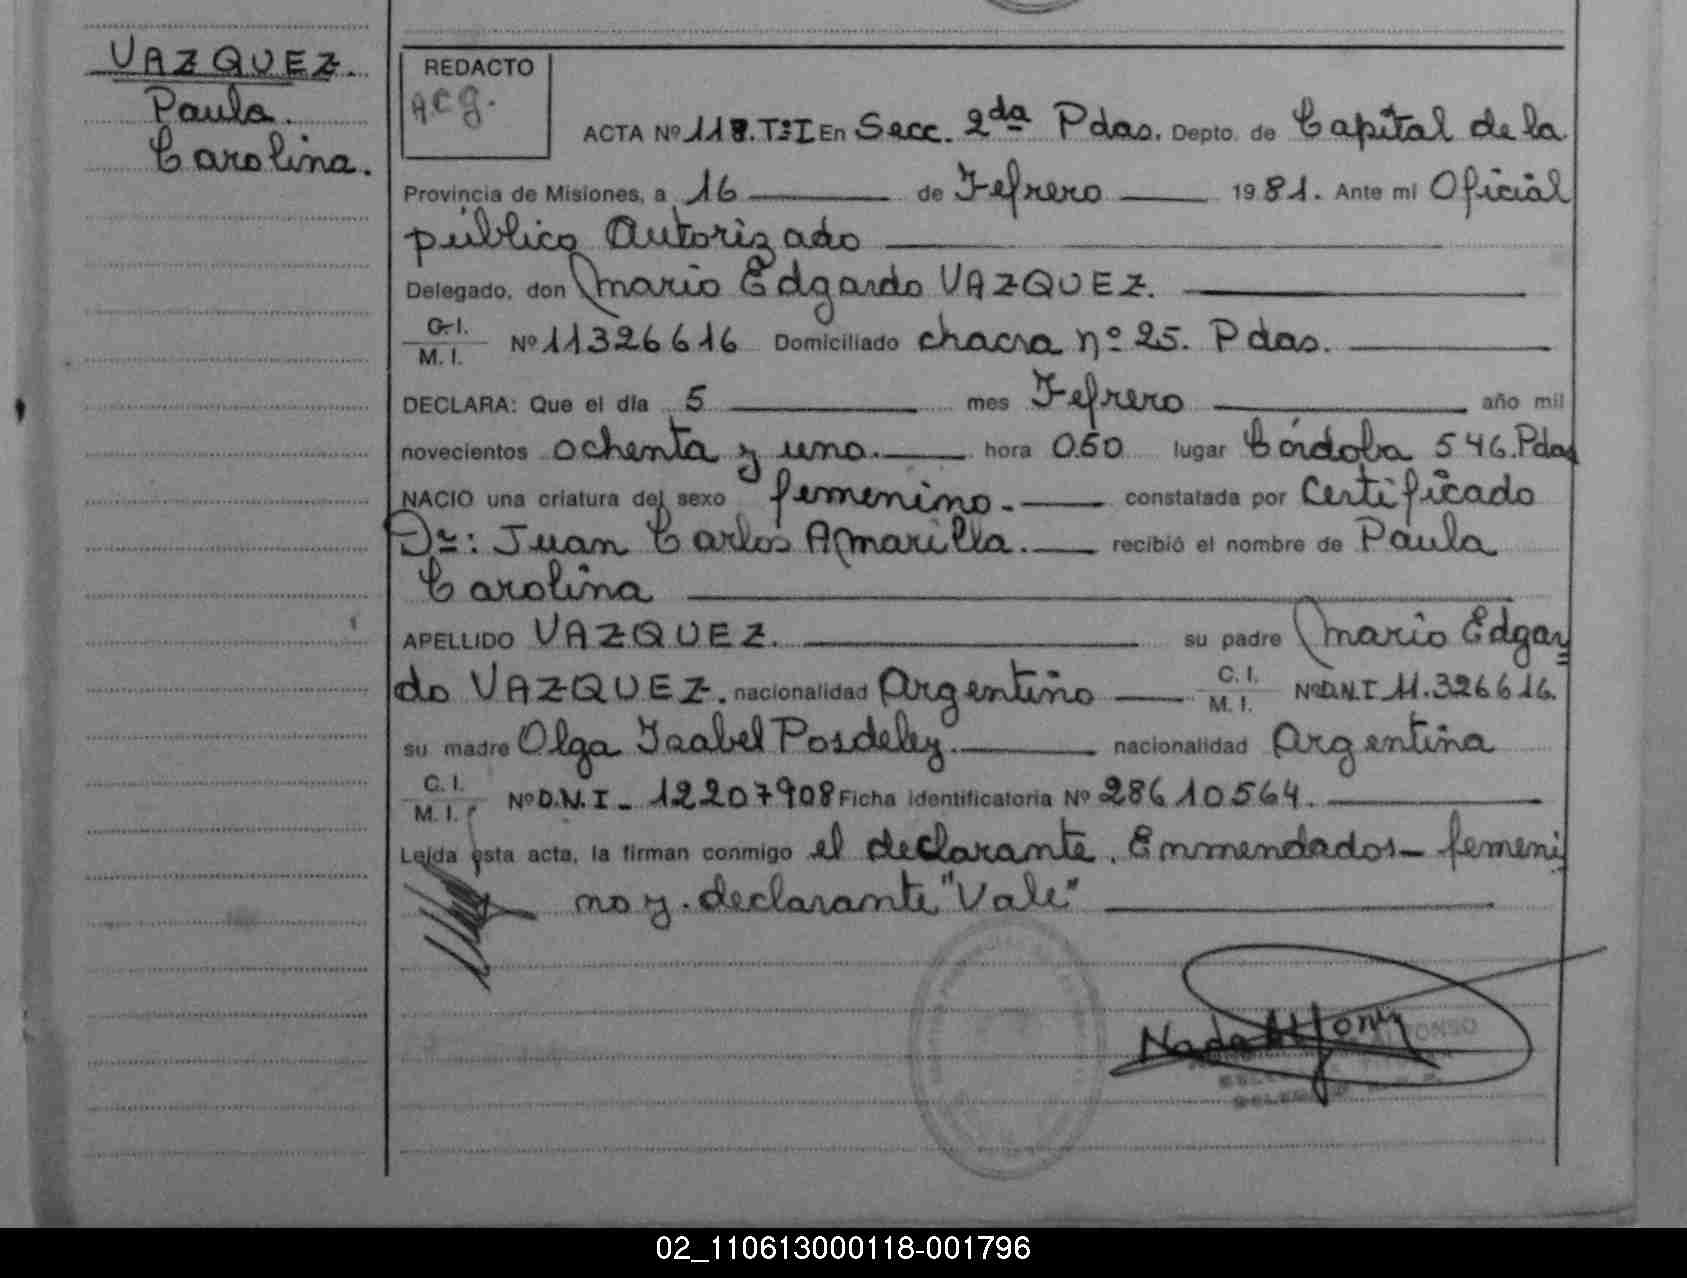 VAZQUEZ.
Paula
Carolina.
REDACTO
A.C.g.
ACTA Nº 118. Tº I En Secc. 2da Pdas. Depto. de Capital de la
Provincia de Misiones, a 16 de Fefrero 1981. Ante mi Oficial
público Autorizado
Delegado, don Mario Edgardo VAZQUEZ.
C.I.
M.I. Nº 11326616 Domiciliado chacra nº 25. Pdas.
DECLARA: Que el día 5 mes Fefrero año mil
novecientos ochenta y uno. hora 0.50 lugar Córdoba 546. Pdas
NACIO una criatura del sexo femenino. constatada por Certificado
Dr: Juan Carlos Amarilla. recibió el nombre de Paula
Carolina
APELLIDO VAZQUEZ. su padre Mario Edgar
do VAZQUEZ. nacionalidad Argentino C.I. M.I. Nº D.N.I 11.326616.
su madre Olga Isabel Posdeley. nacionalidad Argentina
C.I.
M.I. Nº D.N.I - 12207908 Ficha Identificatoria Nº 28610564.
Leída esta acta, la firman conmigo el declarante. Enmendados - femeni
no y. declarante "Vale"
ALFONSO
02_110613000118-001796